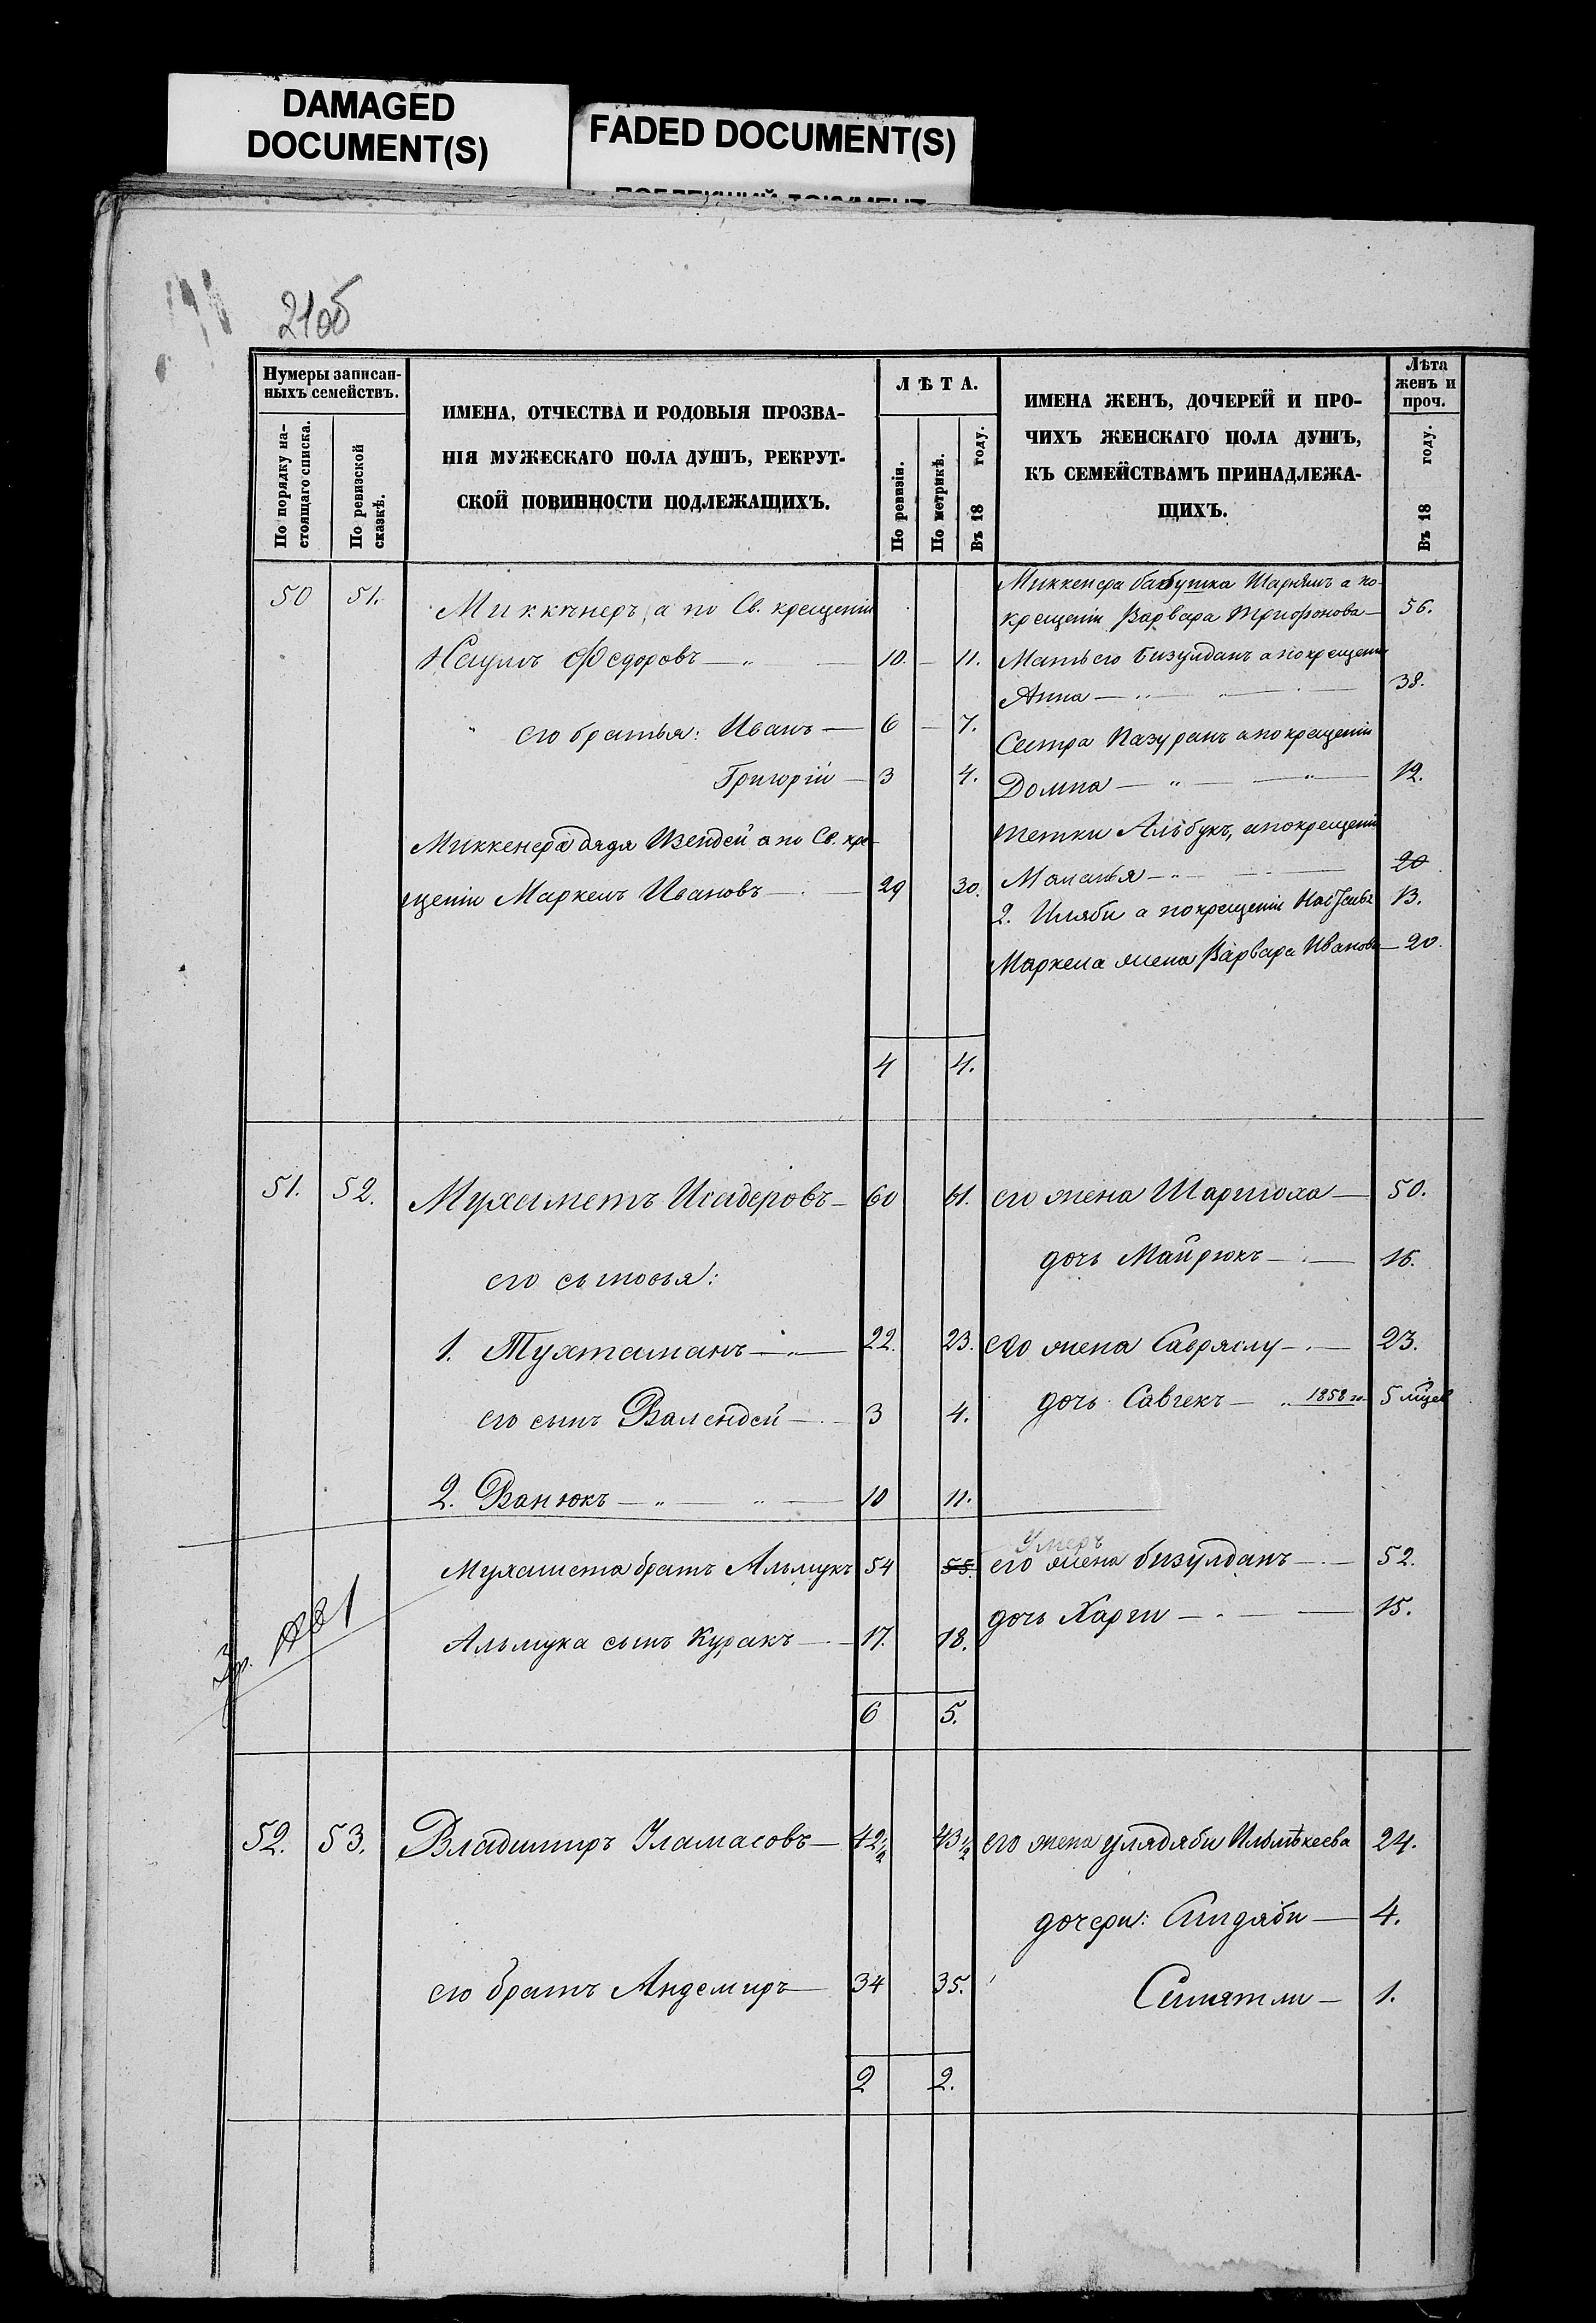 DAMAGED
DOCUMENT(S)
FADED DOCUMENT(S)
21об
Нумеры записан-
ныхъ семействъ.
По порядку на-
стоящаго списка.
По ревизской
сказкѣ.
ИМЕНА, ОТЧЕСТВА И РОДОВЫЯ ПРОЗВА-
НІЯ МУЖЕСКАГО ПОЛА ДУШЪ, РЕКРУТ-
СКОЙ ПОВИННОСТИ ПОДЛЕЖАЩИХЪ.
ЛѢТА.
По ревизіи.
По метрикѣ.
Въ 18 году.
ИМЕНА ЖЕНЪ, ДОЧЕРЕЙ И ПРО-
ЧИХЪ ЖЕНСКАГО ПОЛА ДУШЪ,
КЪ СЕМЕЙСТВАМЪ ПРИНАДЛЕЖА-
ЩИХЪ.
Лѣта
женъ и
проч.
Въ 18 году.
50 51. Миккѣнеръ, а по Св. крещенію
Наумъ Федоровъ — 10. — 11.
его братья: Иванъ — 6 — 7.
Григорій — 3 4.
Миккенера дядя Изендей а по Св. кре-
щенію Маркелъ Ивановъ — 29 30.
4 4.
Миккенера бабушка а по
крещенію Варвара Трифонова — 56.
Мать его Бизулданъ а по крещенію
Анна — 38.
Сестра Пазуранъ а по крещенію
Домна — 12.
тетки Альбукъ, а по крещенію
Маланья — 20
2. Иляби а по крещенію 13.
Маркела жена Варвара Иванова — 20.
51. 52. Мухаметъ Исадеровъ — 60 61. его жена — 50.
дочь Майрюкъ — 15.
его сыновья:
1. Тухтаманъ — 22. 23. его жена Савряслу — 23.
его сынъ Валендей — 3 4. дочь Савгекъ — 1858 го 5 мѣцев
2. Ванюкъ — 10 11.
Умеръ
Мухамета братъ Альмукъ 54 55. его жена Бизулданъ — 52.
Альмука сынъ Куракъ — 17. 18. дочь Харги — 15.
6 5.
52. 53. Владимиръ Уламасовъ — 42 1/2 43 1/2 его жена Улядяби 24.
дочери: Синдяби — 4.
его братъ Андемиръ — 34 35. Симятли — 1.
2 2.